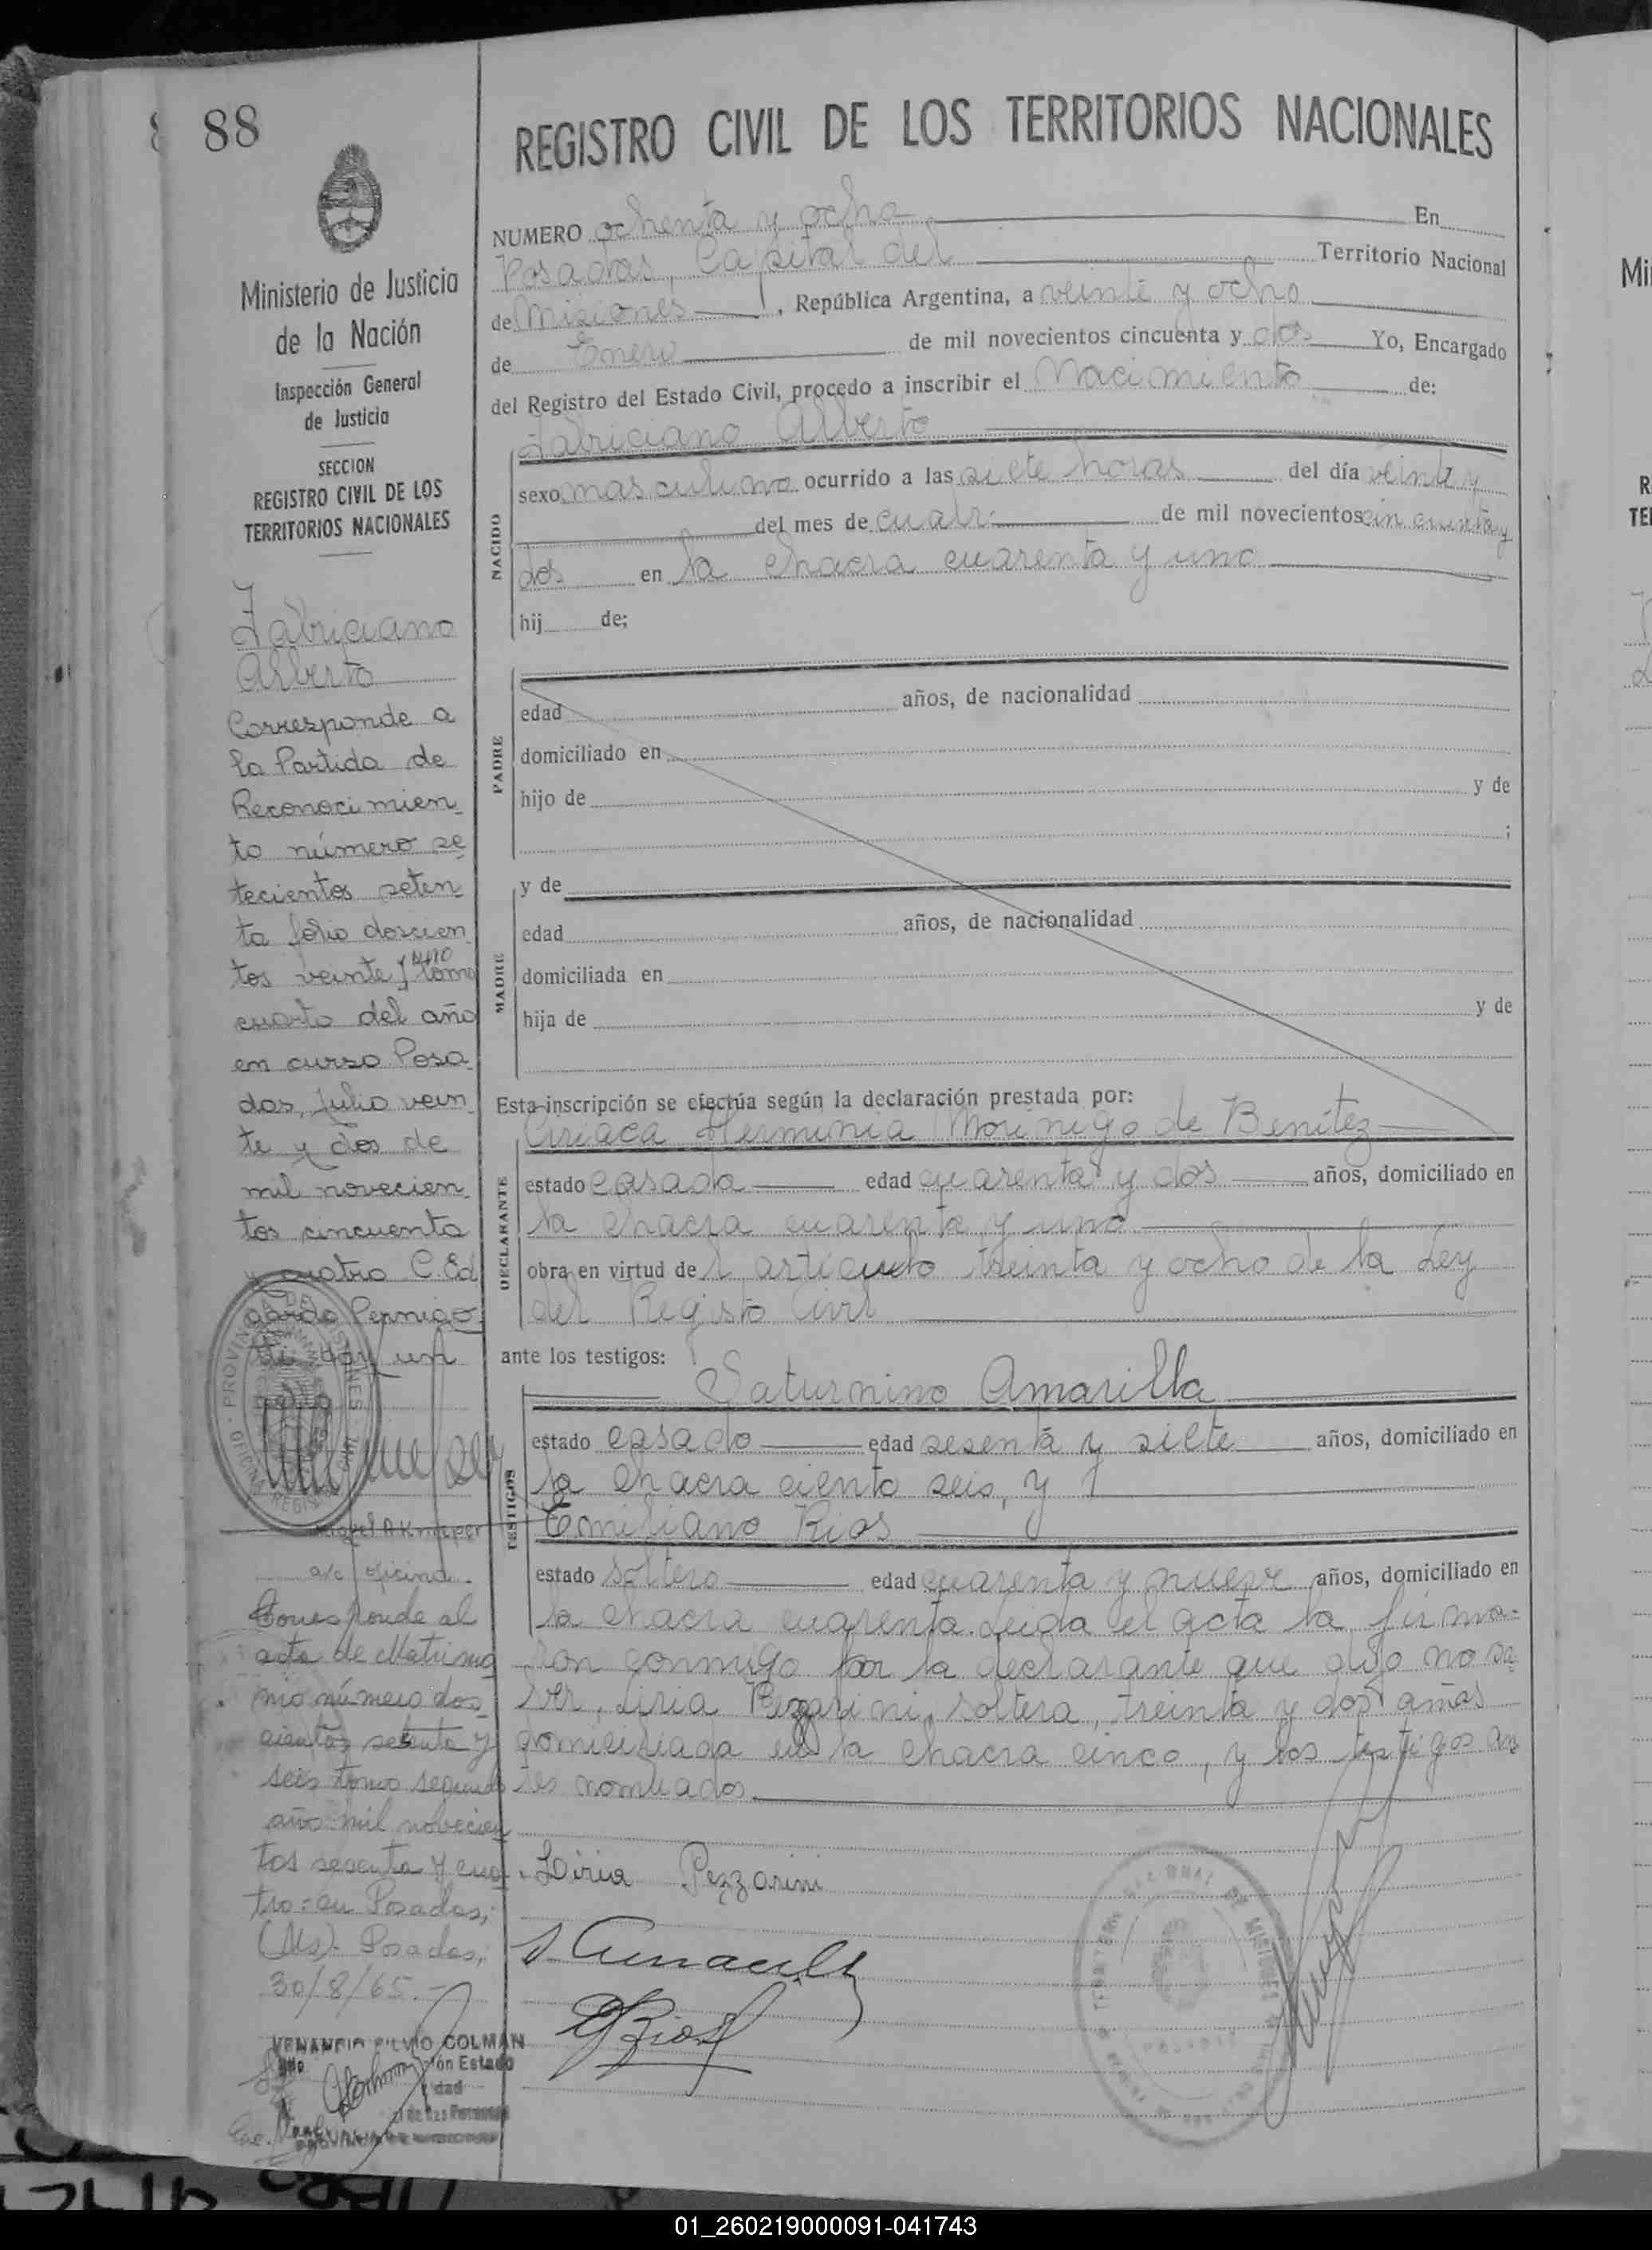 88
REGISTRO CIVIL DE LOS TERRITORIOS NACIONALES
Ministerio de Justicia
de la Nación
Inspección General
de Justicia
SECCION
REGISTRO CIVIL DE LOS
TERRITORIOS NACIONALES
Fabriciano
Alberto
Corresponde a
la Partida de
Reconocimien
to número se
tecientos seten
ta folio doscien
tos veinte y uno tomo
cuarto del año
en curso Posa
das, Julio vein
te y dos de
mil novecien
tos cincuenta
y cuatro C. Ed
gardo Pernigo
tti
a/c oficina.
Corresponde al
acta de Matrimo
nio número dos
cientos setenta y
seis tomo segundo
año mil novecien
tos sesenta y cua
tro: en Posadas,
(Ms). Posadas,
30/8/65.-
VENANCIO SILVIO COLMAN
NUMERO ochenta y ocho En
Posadas, Capital del Territorio Nacional
de Misiones, República Argentina, a veinte y ocho
de Enero de mil novecientos cincuenta y dos Yo, Encargado
del Registro del Estado Civil, procedo a inscribir el Nacimiento de:
Fabriciano Alberto
NACIDO
sexo masculino ocurrido a las siete horas del día veinte y
del mes de de mil novecientos cincuenta y
dos en la chacra cuarenta y uno
hij de;
PADRE
edad años, de nacionalidad
domiciliado en
hijo de y de
;
MADRE
y de
edad años, de nacionalidad
domiciliada en
hija de y de
Esta inscripción se efectúa según la declaración prestada por:
Ciriaca Herminia Morinigo de Benítez
DECLARANTE
estado casada edad cuarenta y dos años, domiciliado en
la chacra cuarenta y uno
obra en virtud del articulo treinta y ocho de la Ley
del Registo Civil
ante los testigos:
Saturnino Amarilla
TESTIGOS
estado casado edad sesenta y siete años, domiciliado en
la chacra ciento seis, y
Emiliano Rios
estado soltero edad cuarenta y nueve años, domiciliado en
la chacra cuarenta. Leida el acta la firma-
ron conmigo por la declarante que dijo no sa
ber, Liria Pezzarini, soltera, treinta y dos años
domiciliada en la chacra cinco, y los testigos an
tes nombrados
Liria Pezzarini
01_260219000091-041743